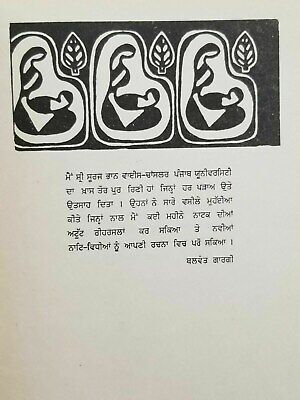 ਮੈਂ ਸ੍ਰੀ ਸੂਰਜ ਭਾਨ ਵਾਈਸ-ਚਾਂਸਲਰ ਪੰਜਾਬ ਯੂਨੀਵਰਸਿਟੀ
ਦਾ ਖ਼ਾਸ ਤੌਰ ਪੁਰ ਰਿਣੀ ਹਾਂ ਜਿਨ੍ਹਾਂ ਹਰ ਪੜਾਅ ਉਤੇ
ਉਤਸਾਹ ਦਿਤਾ । ਉਹਨਾਂ ਨੇ ਸਾਰੇ ਵਸੀਲੇ ਮੁਹੱਈਆ
ਕੀਤੇ ਜਿਨ੍ਹਾਂ ਨਾਲ ਮੈਂ ਕਈ ਮਹੀਨੇ ਨਾਟਕ ਦੀਆਂ
ਅਟੁੱਟ ਰੀਹਰਸਲਾਂ ਕਰ ਸਕਿਆ ਤੇ ਨਵੀਆਂ
ਨਾਟਿ-ਵਿਧੀਆਂ ਨੂੰ ਆਪਣੀ ਰਚਨਾ ਵਿਚ ਪਰੋ ਸਕਿਆ ।
ਬਲਵੰਤ ਗਾਰਗੀ